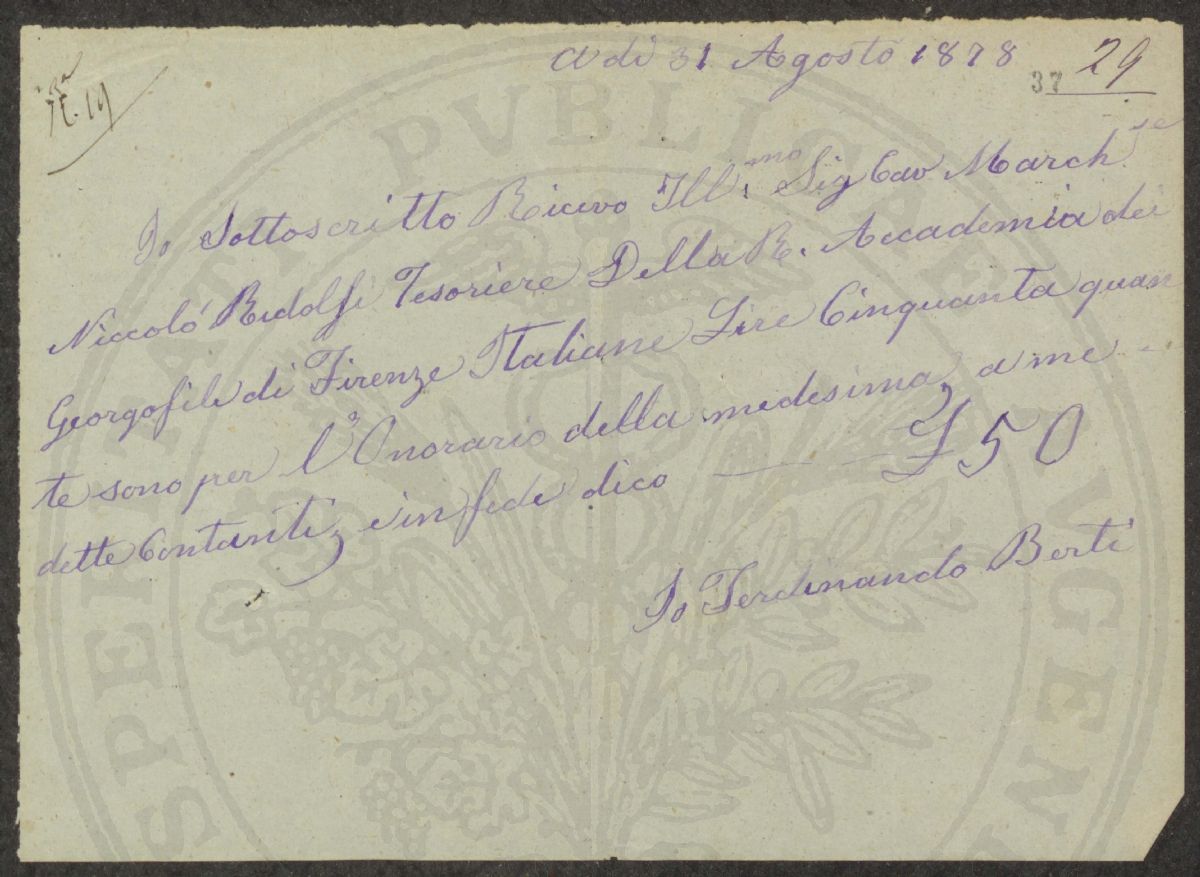 A dì 31 Agosto 1878
37 29
19
Io Sottoscritto Ricevo Ill.mo Sig Cav March.se
Niccoló Ridolfi Tesoriere Della R. Accademia dei
Georgofili di Firenze Italiane Lire Cinquanta quan
te sono per l'Onorario della medesima, a me
dette Contanti, e in fede dico £50
Io Ferdinando Berti
PROSPERITATI PVBLICAE AVGENDAE